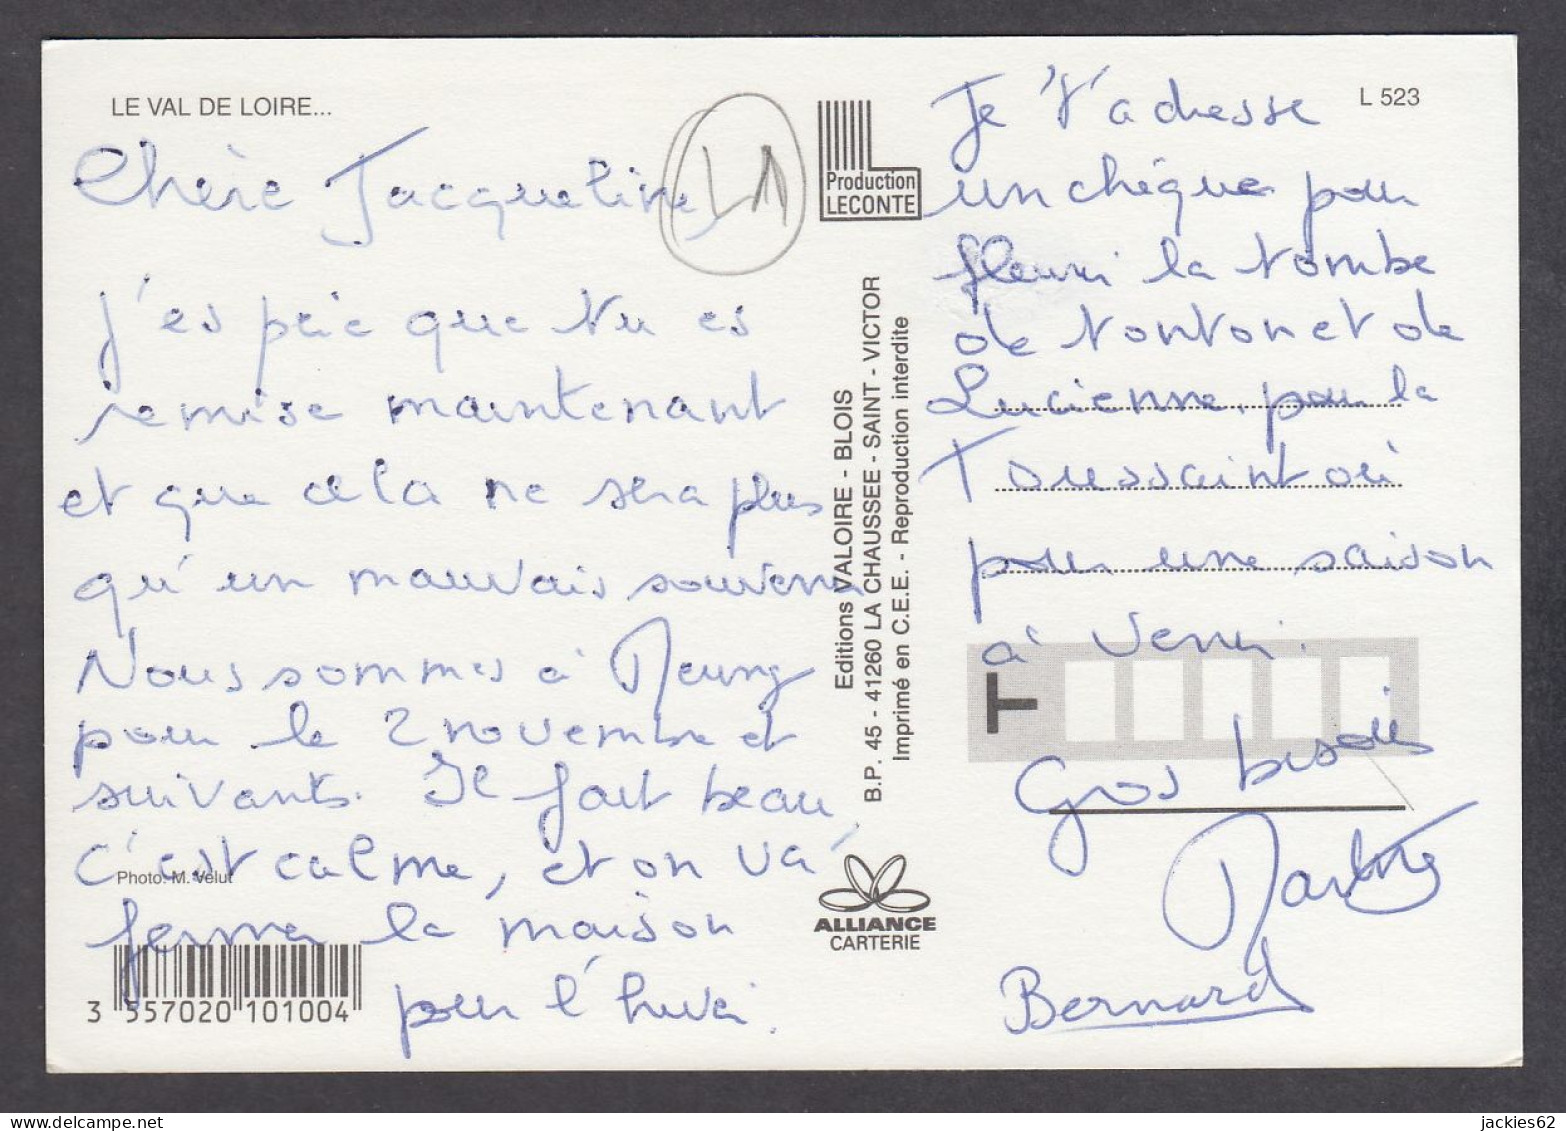 LE VAL DE LOIRE...
Chère Jacqueline
j'espère que tu es
remise maintenant
et que cela ne sera plus
qu'un mauvais souvenir
Nous sommes à Meung
pour le 2 novembre et
suivants. Il fait beau,
c'est calme, et on va
fermer la maison
pour l'hiver.
Photo: M. Velut
3 557020 101004
Production
LECONTE
Editions VALOIRE - BLOIS
B.P. 45 - 41260 LA CHAUSSEE - SAINT - VICTOR
Imprimé en C.E.E. - Reproduction interdite
ALLIANCE
CARTERIE
L 523
Je t'adresse
un chèque pour
fleurir la tombe
de tonton et de
Lucienne, pour la
Toussaint ou
pour une saison
à venir.
T
Gros bisous
Bernard
jackies62
delcampe.net